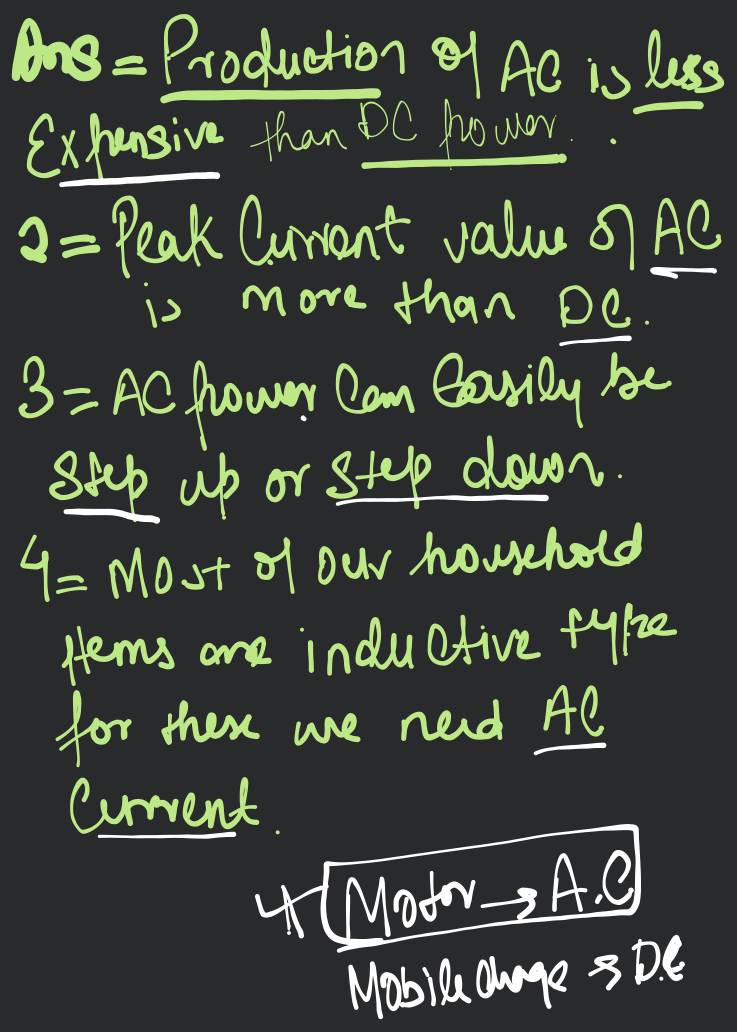 Ans = Production of AC is less
Expensive than DC power.
2 = Peak Current value of AC
is more than DC.
3 = AC power Can Easily be
Step up or Step down.
4 = Most of our household
items are inductive type
for these we need AC
Current.
Motor → A.C
Mobile charge → D.C